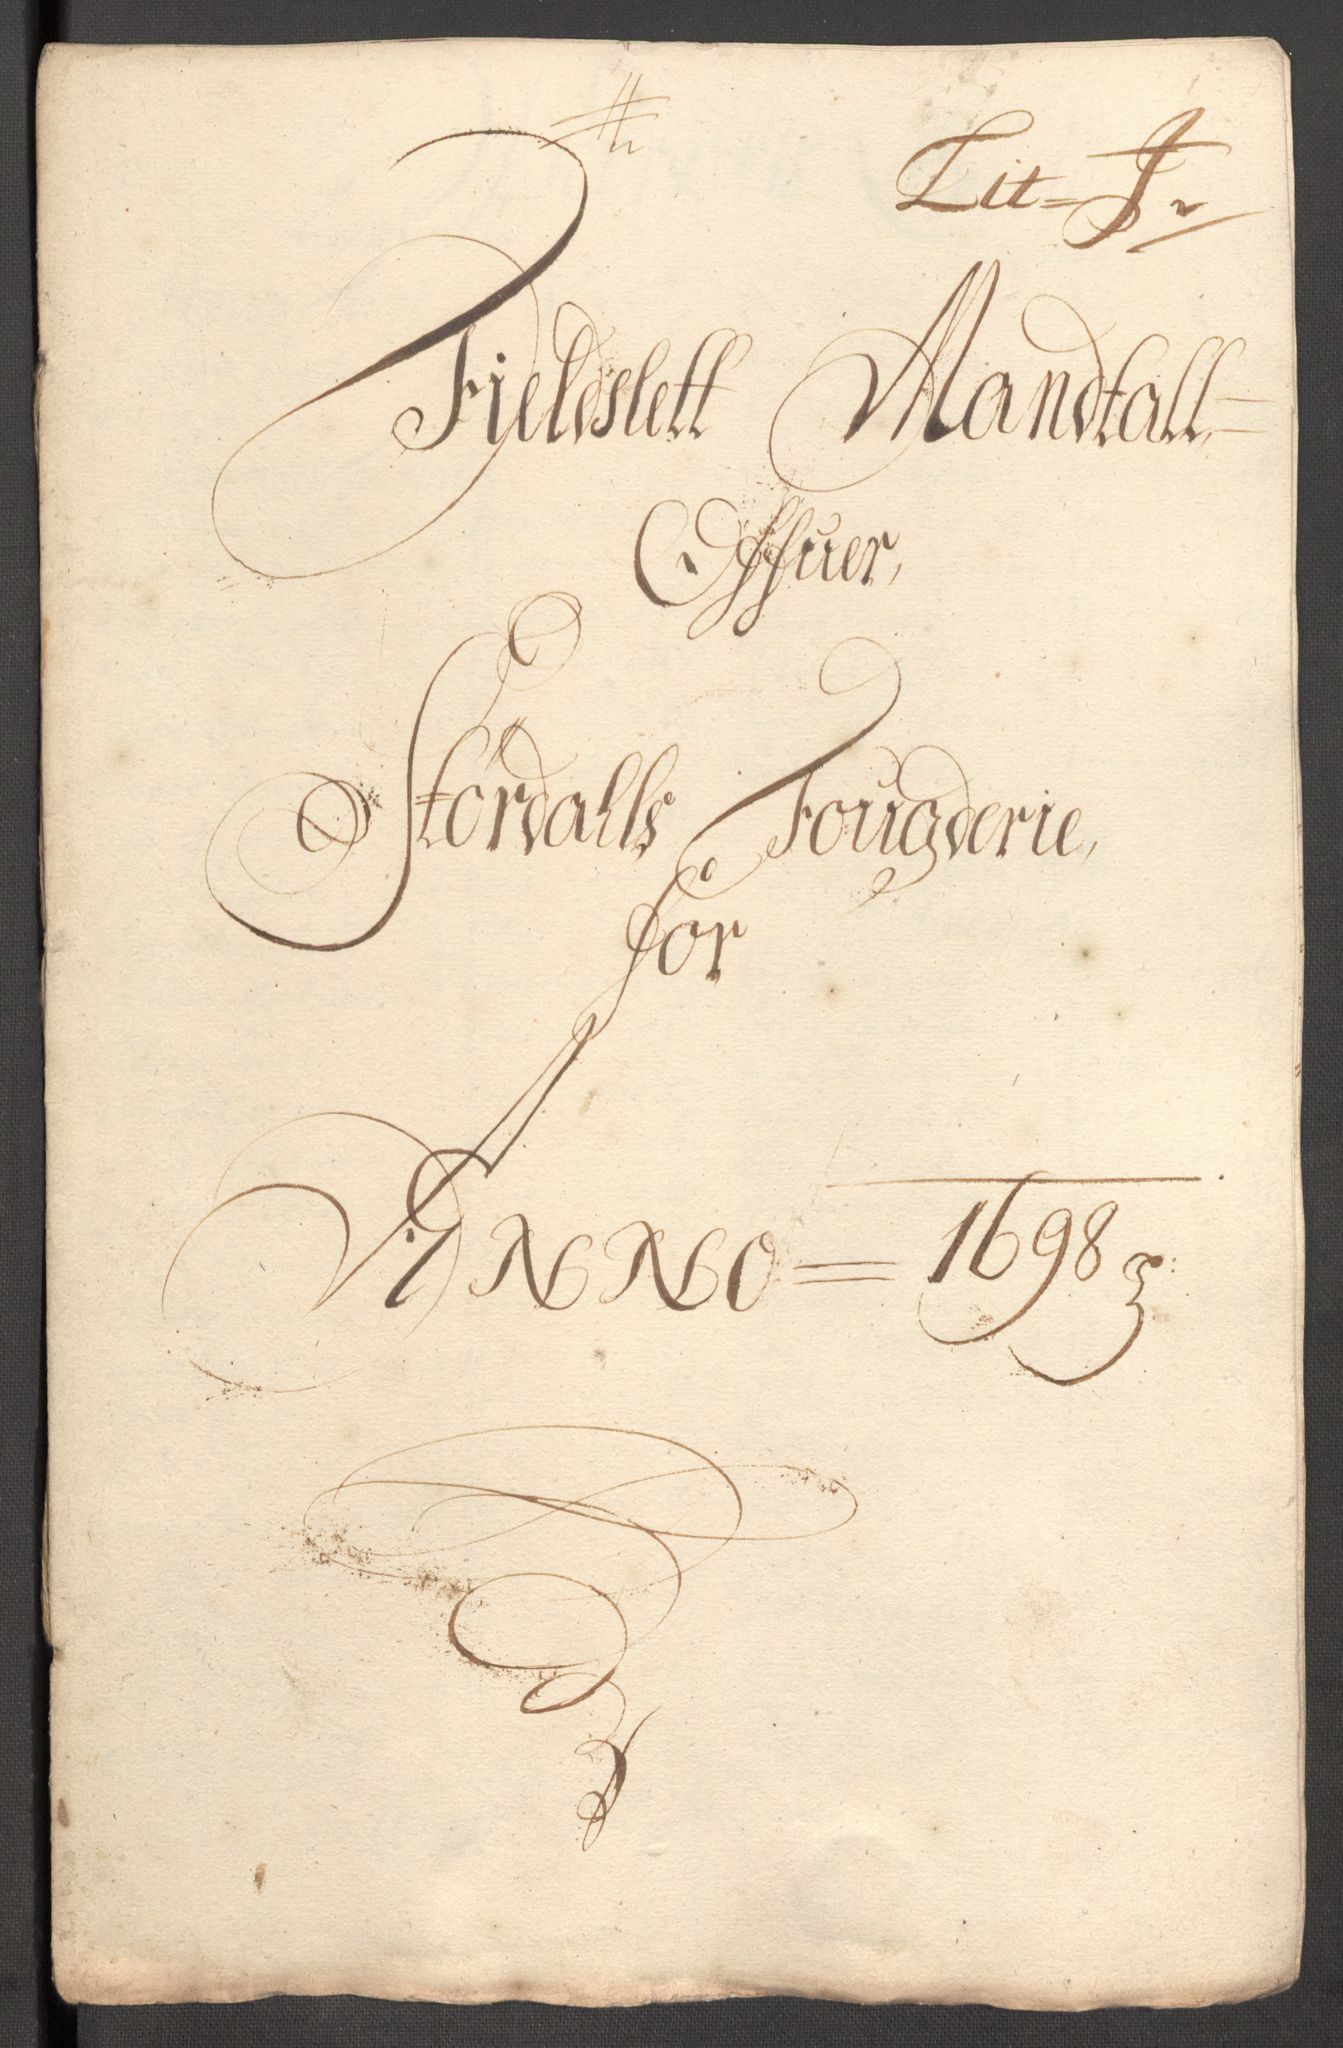 Lit= J.
Fieldslett Mandtall=
Offuer,
Størdalls Fougderie,
for
ANNO = 1698